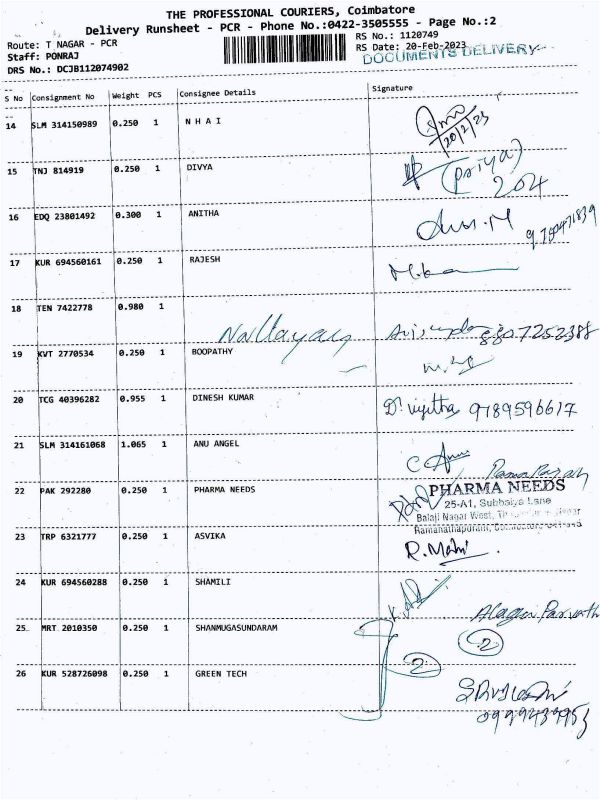 THE PROFESSIONAL COURIERS, Coimbatore
Delivery Runsheet - PCR - Phone No.:0422-3505555 - Page No.:2
Route: T NAGAR - PCR
Staff: PONRAJ
DRS No.: DCJB112074902
RS No.: 1120749
RS Date: 20-Feb-2023
DOCUMENTS DELIVERY
S No Consignment No Weight PCS Consignee Details Signature
14 SLM 314150989 0.250 1 N H A I
20/2/23
15 TNJ 814919 0.250 1 DIVYA (priya)
204
16 EDQ 23801492 0.300 1 ANITHA
17 KUR 694560161 0.250 1 RAJESH
18 TEN 7422778 0.980 1
8807252388
19 KVT 2770534 0.250 1 BOOPATHY
20 TCG 40396282 0.955 1 DINESH KUMAR 9789596617
21 SLM 314161068 1.065 1 ANU ANGEL
22 PAK 292280 0.250 1 PHARMA NEEDS PHARMA NEEDS
25-A1, Subbaiya Lane
Balaji Nagar West,
Ramanathapuram,
23 TRP 6321777 0.250 1 ASVIKA R. Mani
24 KUR 694560288 0.250 1 SHAMILI
25 MRT 2010350 0.250 1 SHANMUGASUNDARAM 2
2
26 KUR 528726098 0.250 1 GREEN TECH